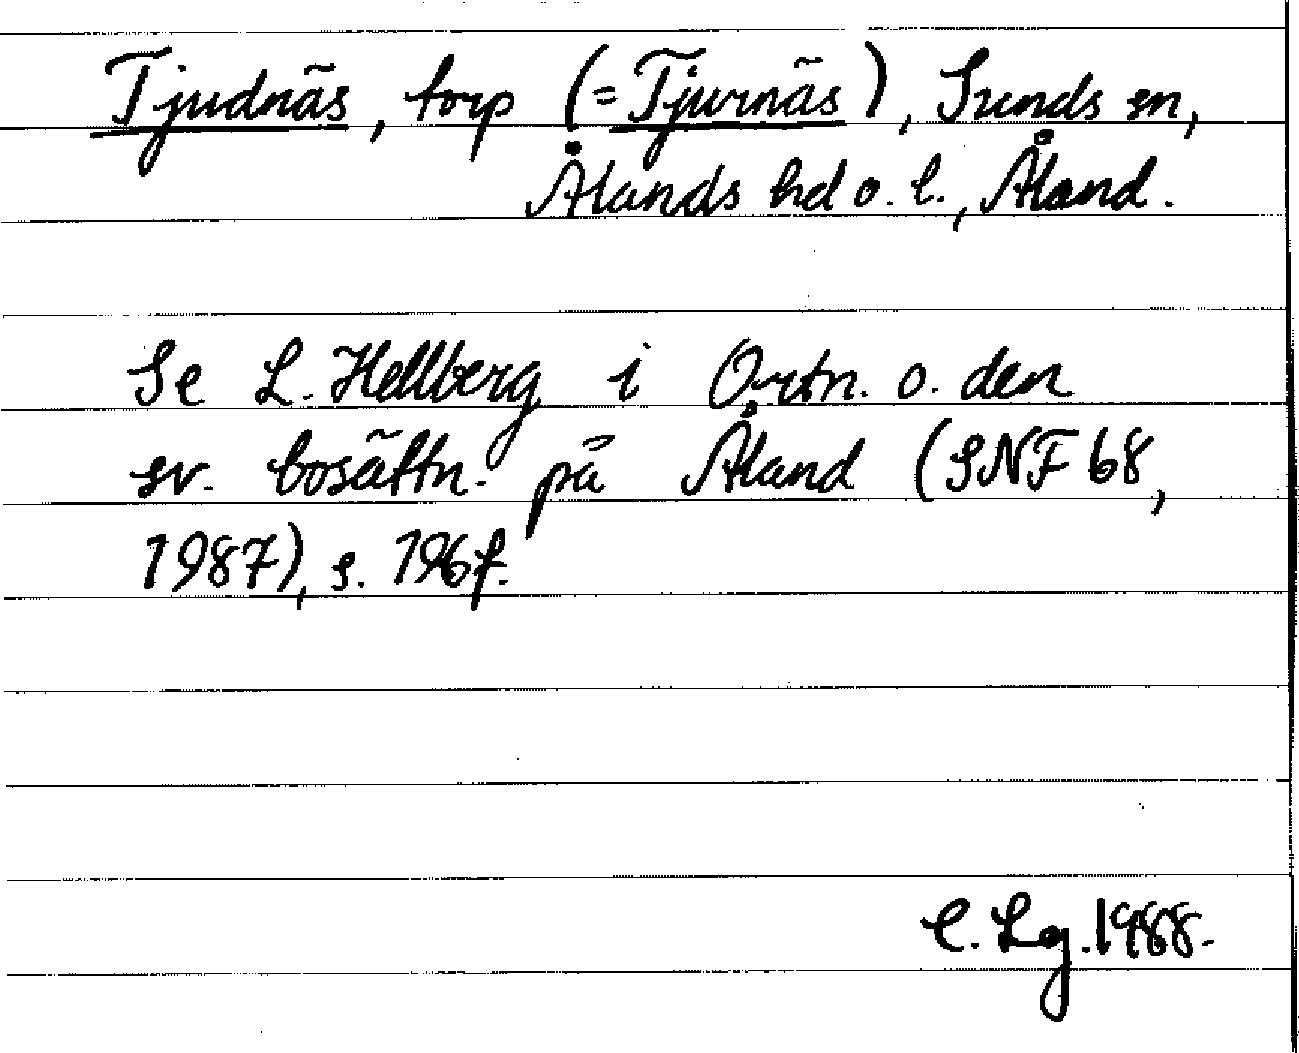 Tjudnäs, torp (=Tjurnäs), Sunds sn,
Ålands hd o. l., Åland.
Se L. Hellberg i Ortn. o. den
sv. bosättn. på Åland (SNF 68,
1987), s. 196f.
C. Lg. 1988.